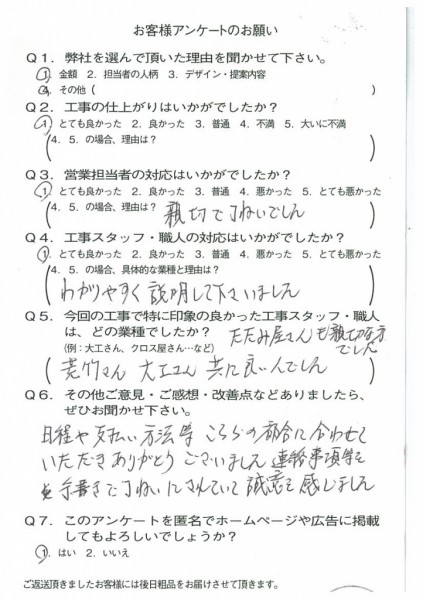 お客様アンケートのお願い
Q1．弊社を選んで頂いた理由を聞かせて下さい。
1．金額 2．担当者の人柄 3．デザイン・提案内容
4．その他（ ）
Q2．工事の仕上がりはいかがでしたか？
1．とても良かった 2．良かった 3．普通 4．不満 5．大いに不満
4．5．の場合、理由は？
Q3．営業担当者の対応はいかがでしたか？
1．とても良かった 2．良かった 3．普通 4．悪かった 5．とても悪かった
4．5．の場合、理由は？ 親切で丁ねいでした
Q4．工事スタッフ・職人の対応はいかがでしたか？
1．とても良かった 2．良かった 3．普通 4．悪かった 5．とても悪かった
4．5．の場合、具体的な業種と理由は？
わかりやすく説明して下さいました
Q5．今回の工事で特に印象の良かった工事スタッフ・職人
は、どの業種でしたか？ たたみ屋さんも親切な方
（例：大工さん、クロス屋さん…など） でした
荒竹さん 大工さん 共に良い人でした
Q6．その他ご意見・ご感想・改善点などありましたら、
ぜひお聞かせ下さい。
日程や支払い方法等 こちらの都合に合わせて
いただきありがとうございました 連絡事項等も
手書きで丁ねいにされていて誠意を感じました
Q7．このアンケートを匿名でホームページや広告に掲載
してもよろしいでしょうか？
1．はい 2．いいえ
ご返送頂きましたお客様には後日粗品をお届けさせて頂きます。